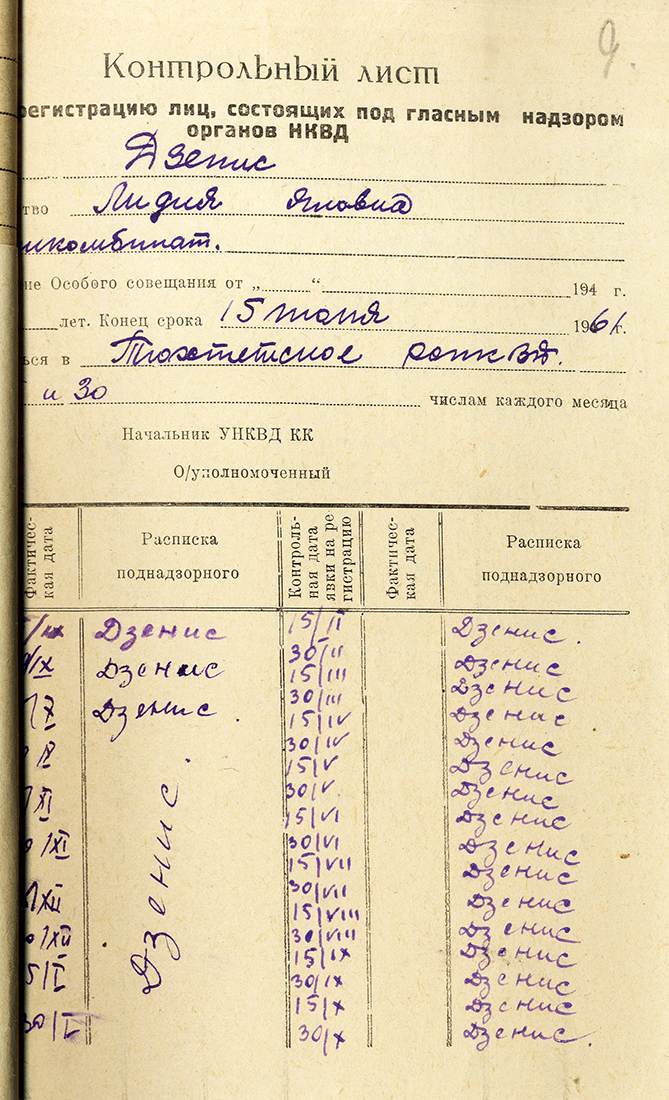 9.
Контрольный лист
регистрацию лиц, состоящих под гласным надзором
органов НКВД
Дзенис
тво Лидия Яновна
икомбинат.
ие Особого совещания от „ “ 194 г.
лет. Конец срока 15 июля 1961 г.
ься в Тюхтетское
и 30 числам каждого месяца
Начальник УНКВД КК
О/уполномоченный
Фактичес-
кая дата
Расписка
поднадзорного
Контроль-
ная дата
явки на ре
гистрацию
Фактичес-
кая дата
Расписка
поднадзорного
/IX Дзенис 15/II Дзенис.
/IX Дзенис 30/II Дзенис
/X Дзенис. 15/III Дзенис
X 30/III Дзенис
/XI 15/IV Дзенис
/XI 30/IV Дзенис
/XII 15/V Дзенис
/XII 30/V. Дзенис
5/I 15/VI Дзенис
30/I 30/VI Дзенис
Дзенис. 15/VII Дзенис
30/VII Дзенис
15/VIII Дзенис
30/VIII Дзенис
15/IX Дзенис
30/IX Дзенис
15/X Дзенис
30/X Дзенис.